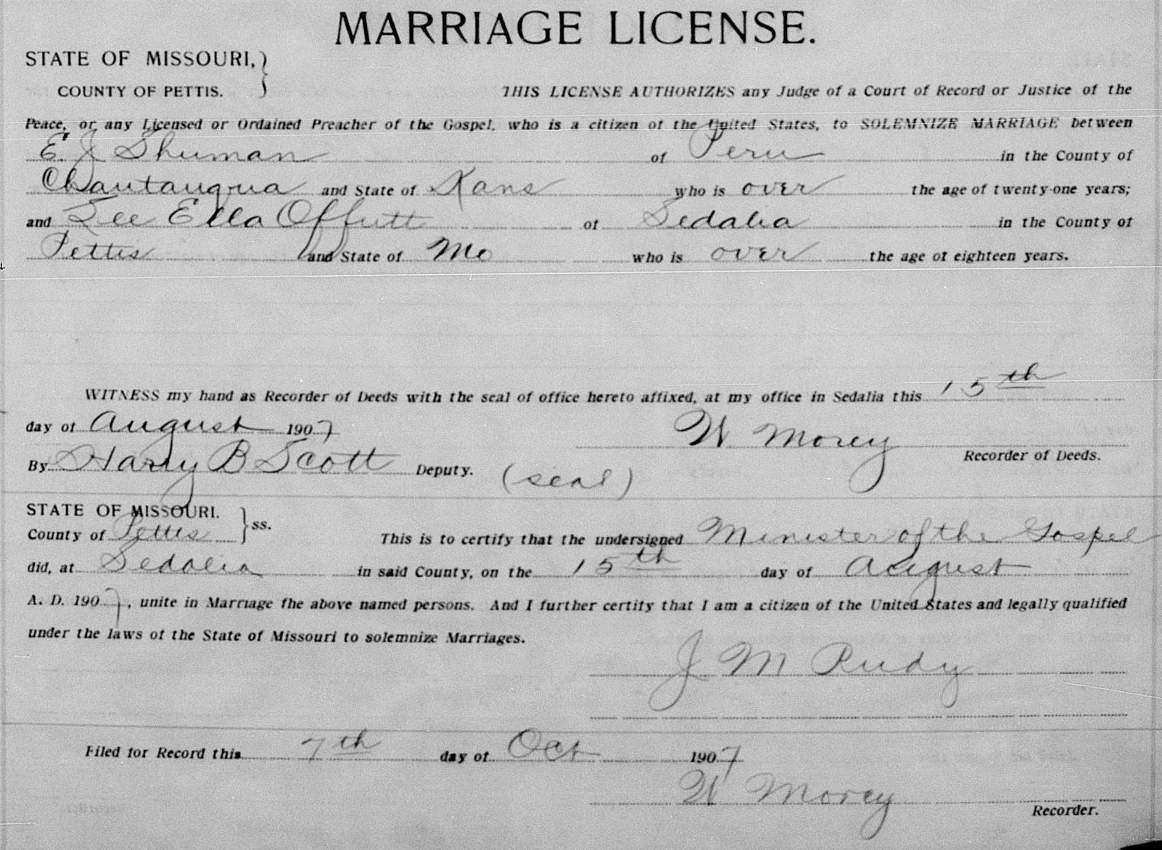 MARRIAGE LICENSE.
STATE OF MISSOURI,
COUNTY OF PETTIS. THIS LICENSE AUTHORIZES any Judge of a Court of Record or Justice of the
Peace, or any Licensed or Ordained Preacher of the Gospel, who is a citizen of the United States, to SOLEMNIZE MARRIAGE between
E. J Shuman of Peru in the County of
Chautauqua and State of Kans who is over the age of twenty-one years;
and Lee Ella Offutt of Sedalia in the County of
Pettis and State of Mo who is over the age of eighteen years.
WITNESS my hand as Recorder of Deeds with the seal of office hereto affixed, at my office in Sedalia this 15th
day of August 1907 W. Morey
Recorder of Deeds.
By Harry B Scott Deputy. (seal)
STATE OF MISSOURI.
County of Pettis ss. This is to certify that the undersigned Minister of the Gospel
did, at Sedalia in said County, on the 15th day of August
A. D. 1907, unite in Marriage the above named persons. And I further certify that I am a citizen of the United States and legally qualified
under the laws of the State of Missouri to solemnize Marriages.
J M Rudy
Filed for Record this 7th day of Oct 1907
W Morey
Recorder.